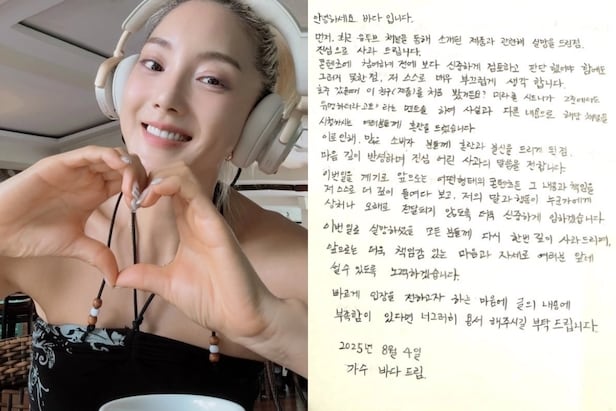 안녕하세요 바다 입니다.
먼저, 최근 유튜브 채널을 통해 소개된 제품과 관련해 실망을 드린점,
진심으로 사과 드립니다.
콘텐츠에 참여하기 전에 보다 신중하게 검토하고 판단 했어야 함에도
그러지 못한 점, 저 스스로 매우 부끄럽게 생각 합니다.
호주 갔을때에 이 브랜드 제품을 처음 봤거든요? 시드니가 고향에서도
유명하더라고요" 라는 멘트를 하여 사실과 다른 내용으로 해당 채널을
시청하시는 여러분들께 혼란을 드렸습니다
이로 인해, 많은 소비자 분들께 혼란과 불신을 드리게 된 점,
마음 깊이 반성하며 진심 어린 사과의 말씀을 전합니다.
이번일을 계기로 앞으로는 어떤형태의 콘텐츠든 그 내용과 책임을
저 스스로 더 깊이 들여다 보고, 저의 말과 행동이 누군가에게
상처나 오해로 전달되지 않도록 더욱 신중하게 임하겠습니다.
이번일로 실망하셨을 모든 분들께 다시 한번 깊이 사과드리며,
앞으로는 더욱 책임감 있는 마음과 자세로 여러분 앞에
설수 있도록 노력하겠습니다.
바르게 입장을 전하고자 하는 마음에 글의 내용에
부족함이 있다면 너그러히 용서 해주시길 부탁 드립니다.
2025년 8월 4일
가수 바다 드림.